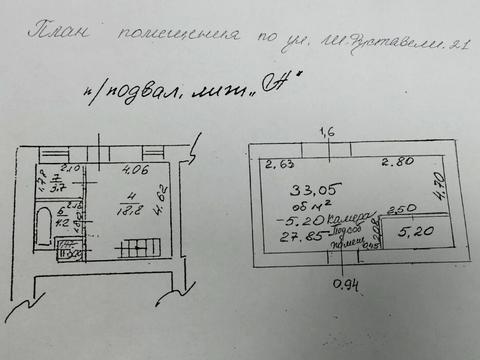 План помещения по ул. Ш. Руставели. 21
п/подвал, лит „Ж"
2.10
4.06
1.78
7
3.7
4
18,8
4.62
2.16
6
4.2
1,6
2.63
2.80
33,05
об м²
4.70
-5.20 камера
2.50
27.85 - Подсоб
помещ
2.08
5,20
0.45
0.94